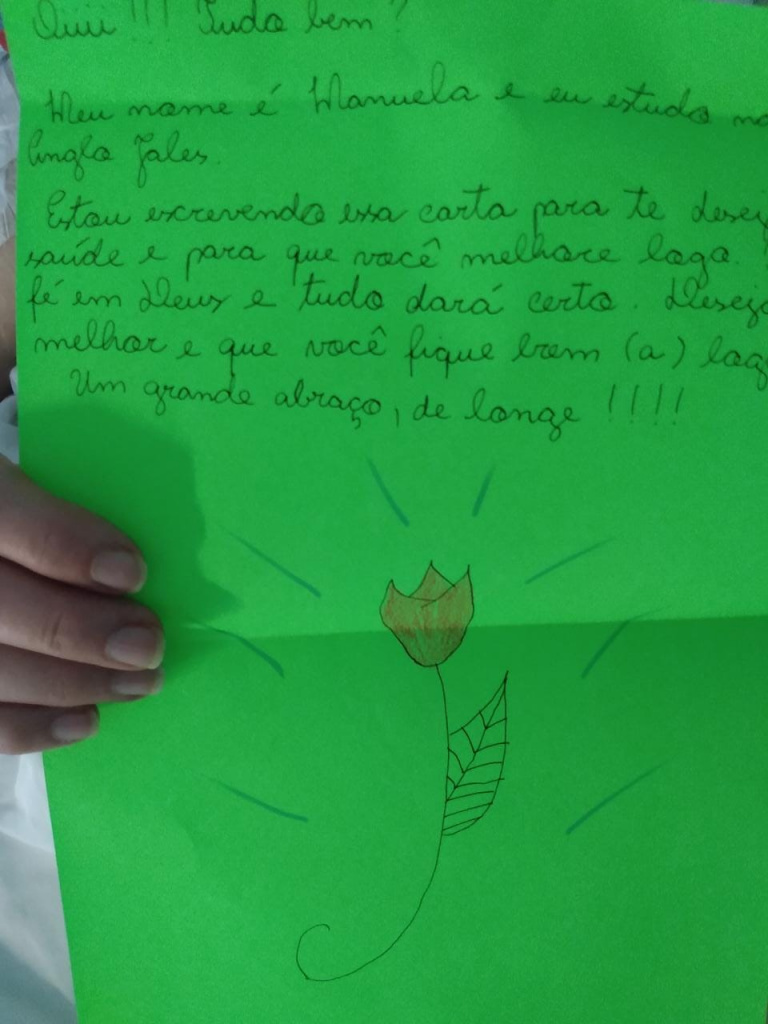 Oiii !!! Tudo bem?
Meu nome é Manuela e eu estudo no
Anglo Jales.
Estou escrevendo essa carta para te desej
saúde e para que você melhore logo.
fé em Deus e tudo dará certo. Desejo
melhor e que você fique bem (a) log
Um grande abraço, de longe !!!!